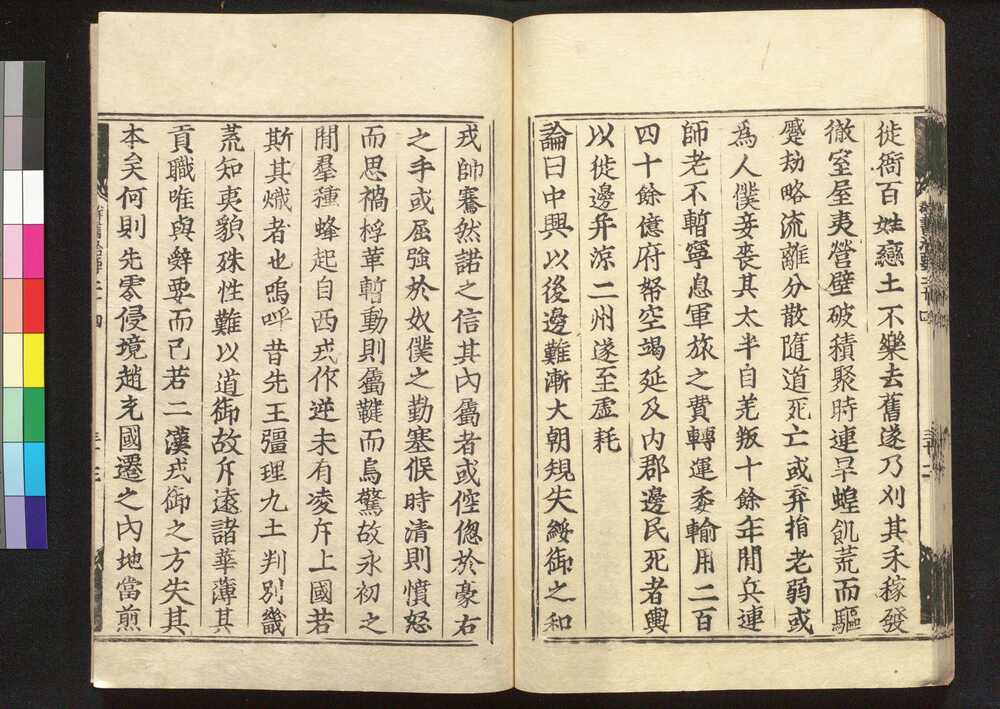 徙衙百姓戀土不樂去舊遂乃刈其禾稼發
徹室屋夷營壁破積聚時連旱蝗飢荒而驅
蹙劫略流離分散隨道死亡或弃捐老弱或
為人僕妾喪其太半自羌叛十餘年閒兵連
師老不暫寧息軍旅之費轉運委輸用二百
四十餘億府帑空竭延及內郡邊民死者輿
以徙邊并涼二州遂至虛耗
論曰中興以後邊難漸大朝規失綏御之和
戎帥騫然諾之信其內屬者或倥傯於豪右
之手或屈強於奴僕之勤塞候時清則憤怒
而思禍桴革暫動則屬鞬而鳥驚故永初之
閒羣種蜂起自西戎作逆未有凌斥上國若
斯其熾者也嗚呼昔先王彊理九土判別畿
荒知夷貊殊性難以道御故斥遠諸華薄其
貢職唯與辭要而已若二漢戎御之方失其
本矣何則先零侵境趙充國遷之內地當煎